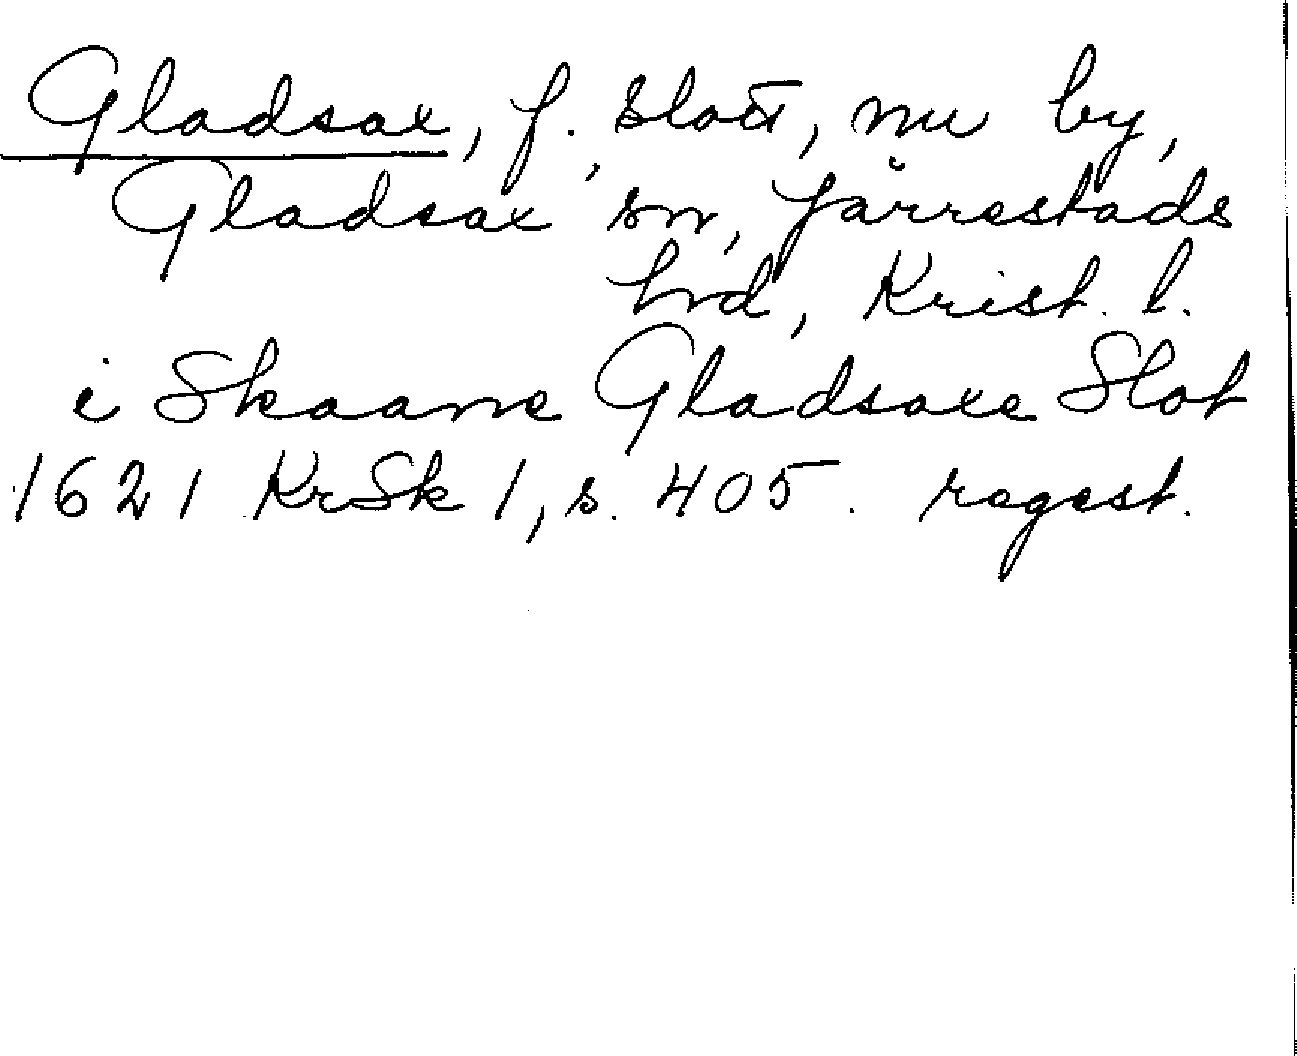 Gladsax, f. slott, nu by,
Gladsax sn, Järrestads
hrd, Krist. l.
i Skaane Gladsaxe Slot
1621 KrSk 1, s. 405. regest.